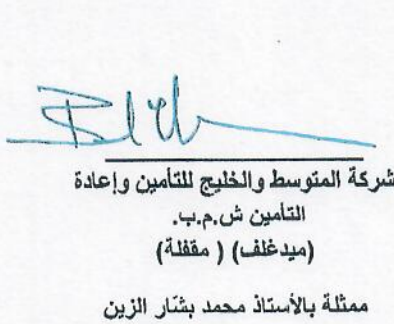 شركة المتوسط والخليج للتأمين وإعادة
التأمين ش.م.ب.
(ميدغلف) ( مقفلة)
ممثلة بالأستاذ محمد بشّار الزين